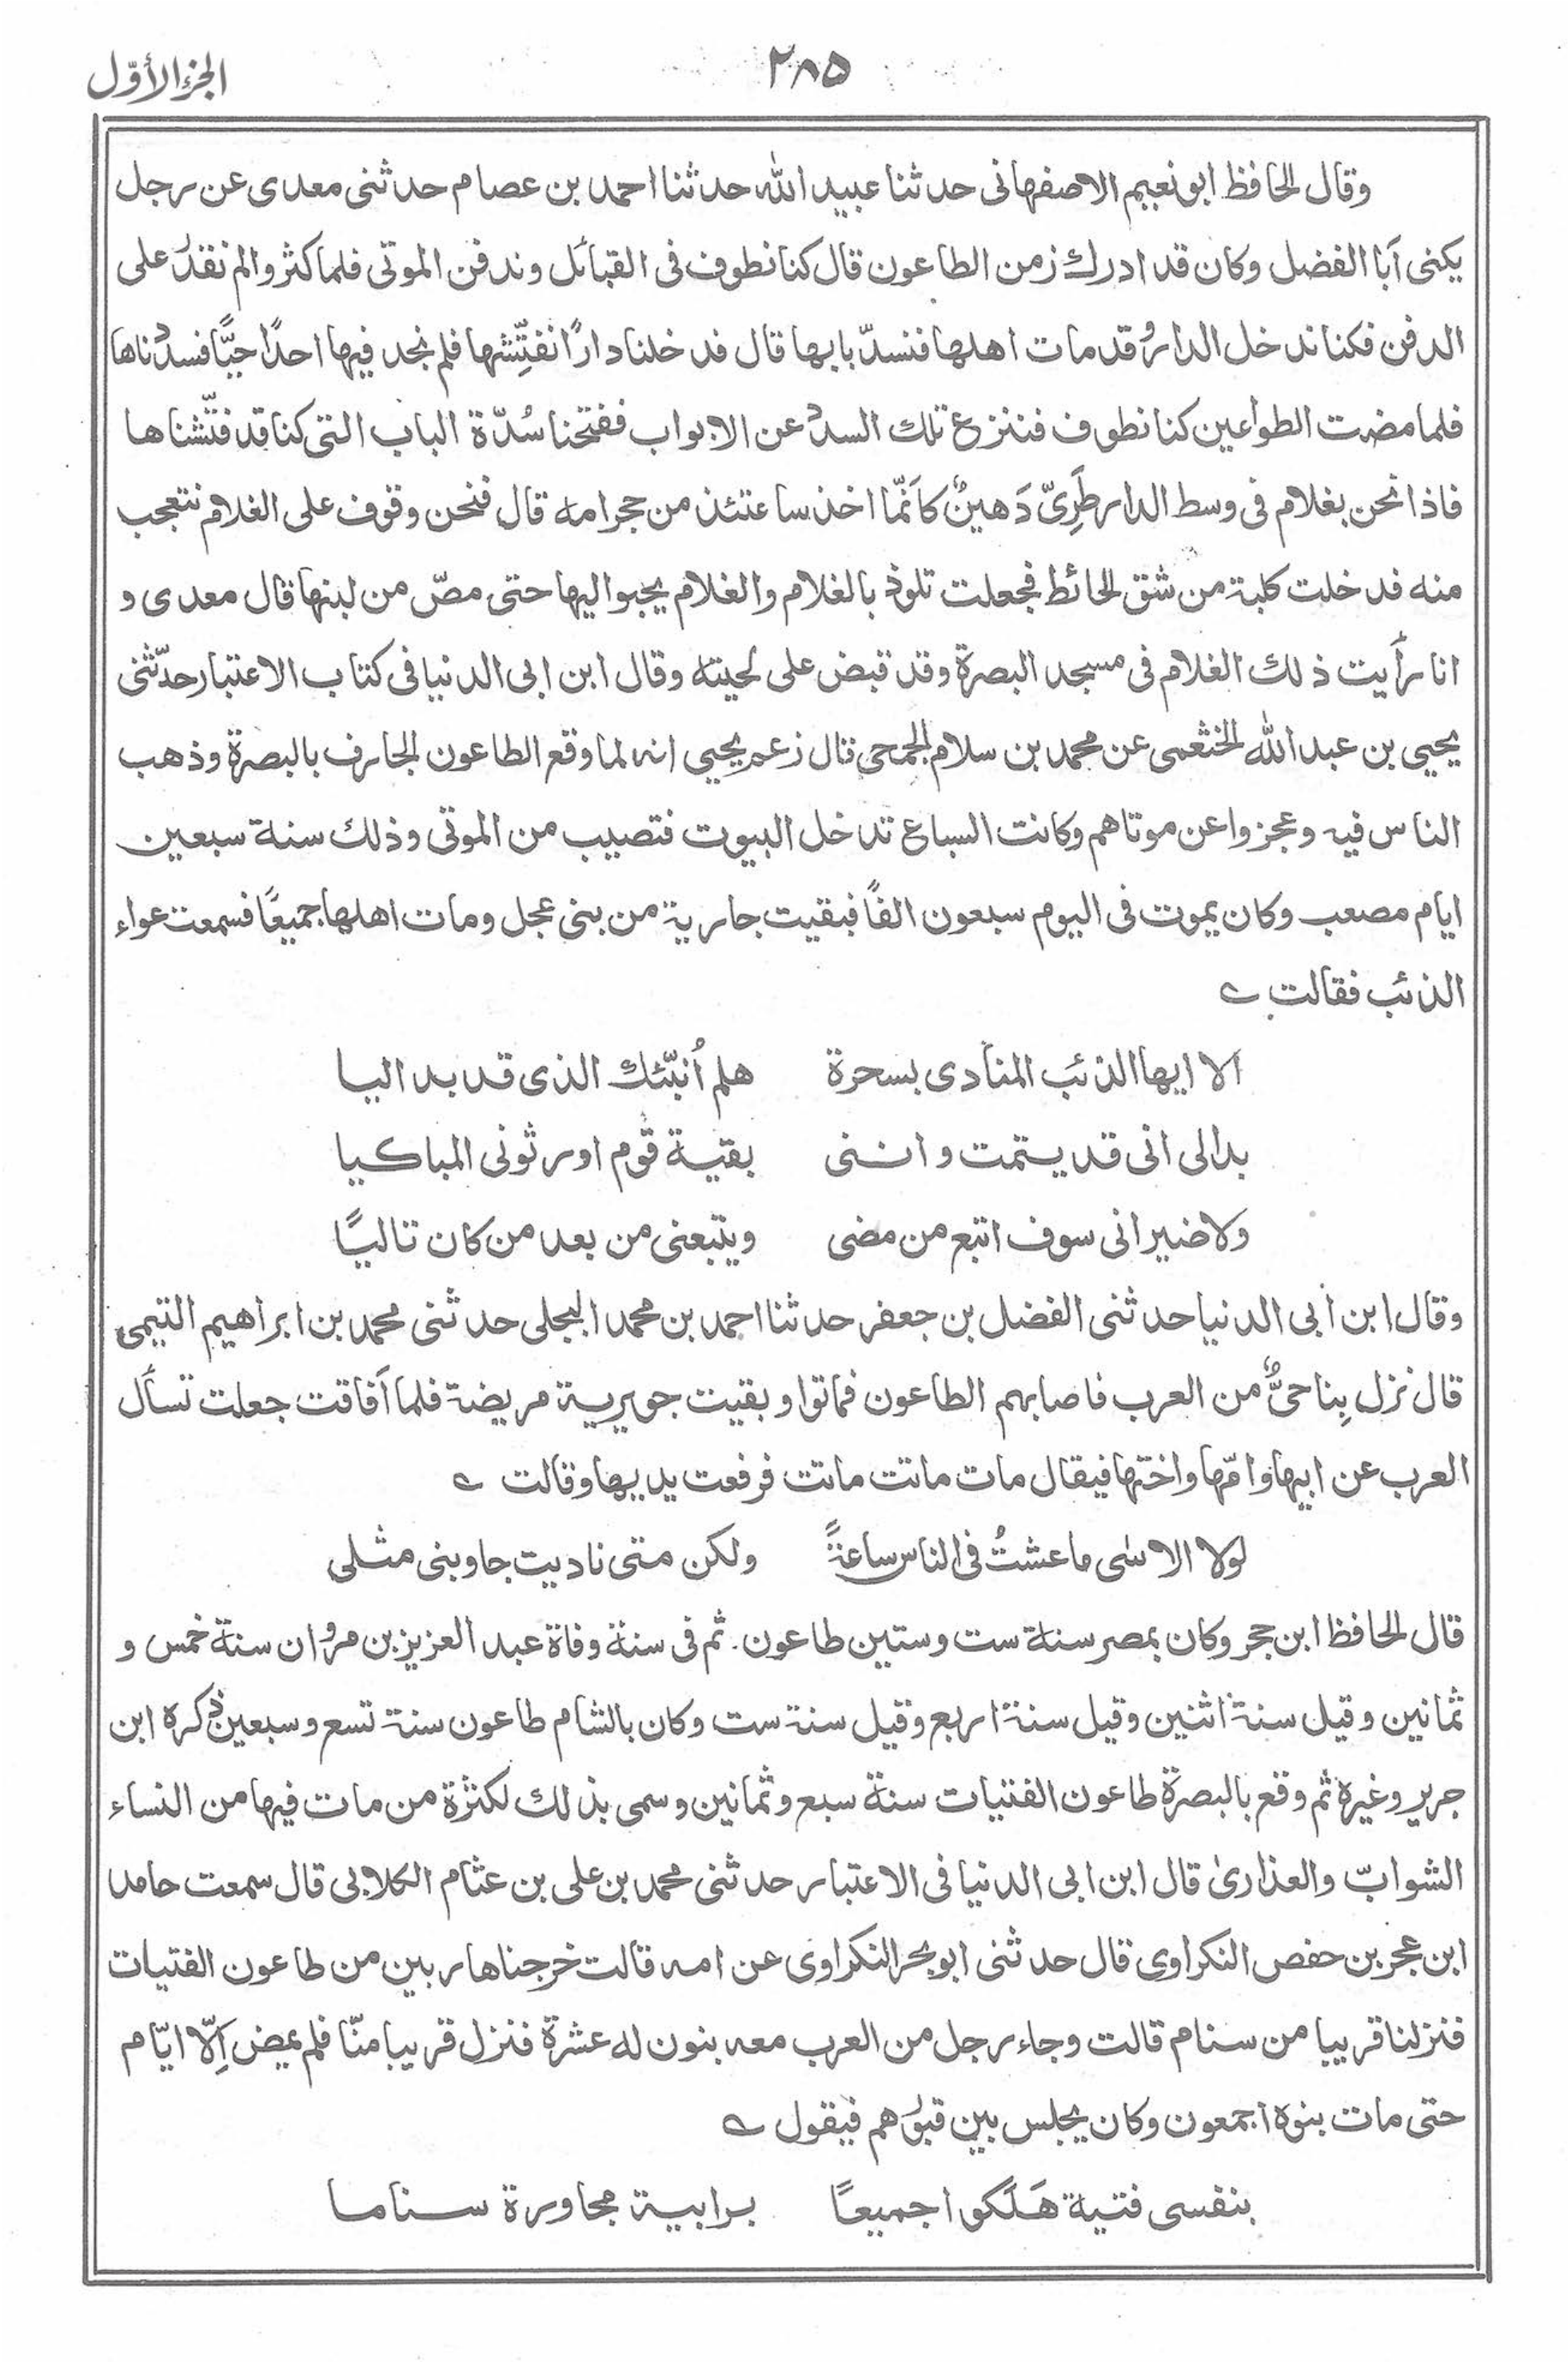 الجزء الأوّل
٢٨٥
وقال الحافظ ابونعيم الاصفهانى حدثنا عبيد الله حدثنا احمد بن عصام حدثنى معدى عن رجل
يكنى آبا الفضل وكان قد ادرك زمن الطاعون قال كنا نطوف فى القبائل وندفن الموتى فلما كثروا لم نقدر على
الدفن فكنا ندخل الدار وقد مات اهلها فنسدّ بابها قال فدخلنا دارًا نفتّشها فلم نجد فيها احدًا حيًّا فسددناها
فلما مضت الطواعين كنا نطوف فننزع تلك السدد عن الابواب ففتحنا سُدّة الباب التى كنا قد فتّشناها
فاذا نحن بغلام فى وسط الدار طَرِىّ دَهينٌ كاَنّما اخذ ساعتئذ من حجر امه قال فنحن وقوف على الغلام نتعجب
منه فدخلت كلبة من شق الحائط فجعلت تلوذ بالغلام والغلام يحبوا اليها حتى مصّ من لبنها قال معدى و
انا رأيت ذلك الغلام فى مسجد البصرة وقد قبض على لحيته وقال ابن ابى الدنيا فى كتاب الاعتبار حدّثنى
يحيى بن عبد الله الخثعمى عن محمد بن سلام الجمحى قال زعم يحيى انه لما وقع الطاعون الجارف بالبصرة وذهب
الناس فيه وعجزوا عن موتاهم وكانت السباع تدخل البيوت فتصيب من الموتى وذلك سنة سبعين
ايام مصعب وكان يموت فى اليوم سبعون الفًا فبقيت جارية من بنى عجل ومات اهلها جميعًا فسمعت عواء
الذئب فقالت ؎
الا ايها الذئب المنادى بسحرة هلم اُنبّئك الذى قد بدا ليا
بدا لى انى قد يتمت واننى بقية قوم اورثونى المباكيا
ولا ضير انى سوف اتبع من مضى ويتبعنى من بعد من كان تاليًا
وقال ابن أبى الدنيا حدثنى الفضل بن جعفر حدثنا احمد بن محمد البجلى حدثنى محمد بن ابراهيم التيمى
قال نزل بِنا حىٌّ من العرب فاصابهم الطاعون فماتوا وبقيت جويرية مريضة فلما آفاقت جعلت تسأل
العرب عن ابيها وامّها واختها فيقال مات ماتت ماتت فرفعت يديها وقالت ؎
لولا الاسٰى ما عشتُ فى الناس ساعةً ولكن متى ناديت جاوبنى مثلى
قال الحافظ ابن حجر وكان بمصر سنة ست وستين طاعون. ثم فى سنة وفاة عبد العزيز بن مروان سنة خمس و
ثمانين وقيل سنة اثنين وقيل سنة اربع وقيل سنة ست وكان بالشام طاعون سنة تسع وسبعين ذكره ابن
جرير وغيره ثم وقع بالبصرة طاعون الفتيات سنة سبع وثمانين وسمى بذلك لكثرة من مات فيها من النساء
الشوابّ والعذارىٰ قال ابن ابى الدنيا فى الاعتبار حدثنى محمد بن على بن عثام الكلابى قال سمعت حامد
ابن عجر بن حفص النكراوى قال حدثنى ابو بحر النكراوى عن امه قالت خرجنا هاربين من طاعون الفتيات
فنزلنا قريبا من سنام قالت وجاء رجل من العرب معه بنون له عشرة فنزل قريبا منّا فلم يمض اِلّا ايّام
حتى مات بنوه اجمعون وكان يجلس بين قبورهم فيقول ؎
بنفسى فتية هَلَكوا جميعًا برابية مجاورة سناما